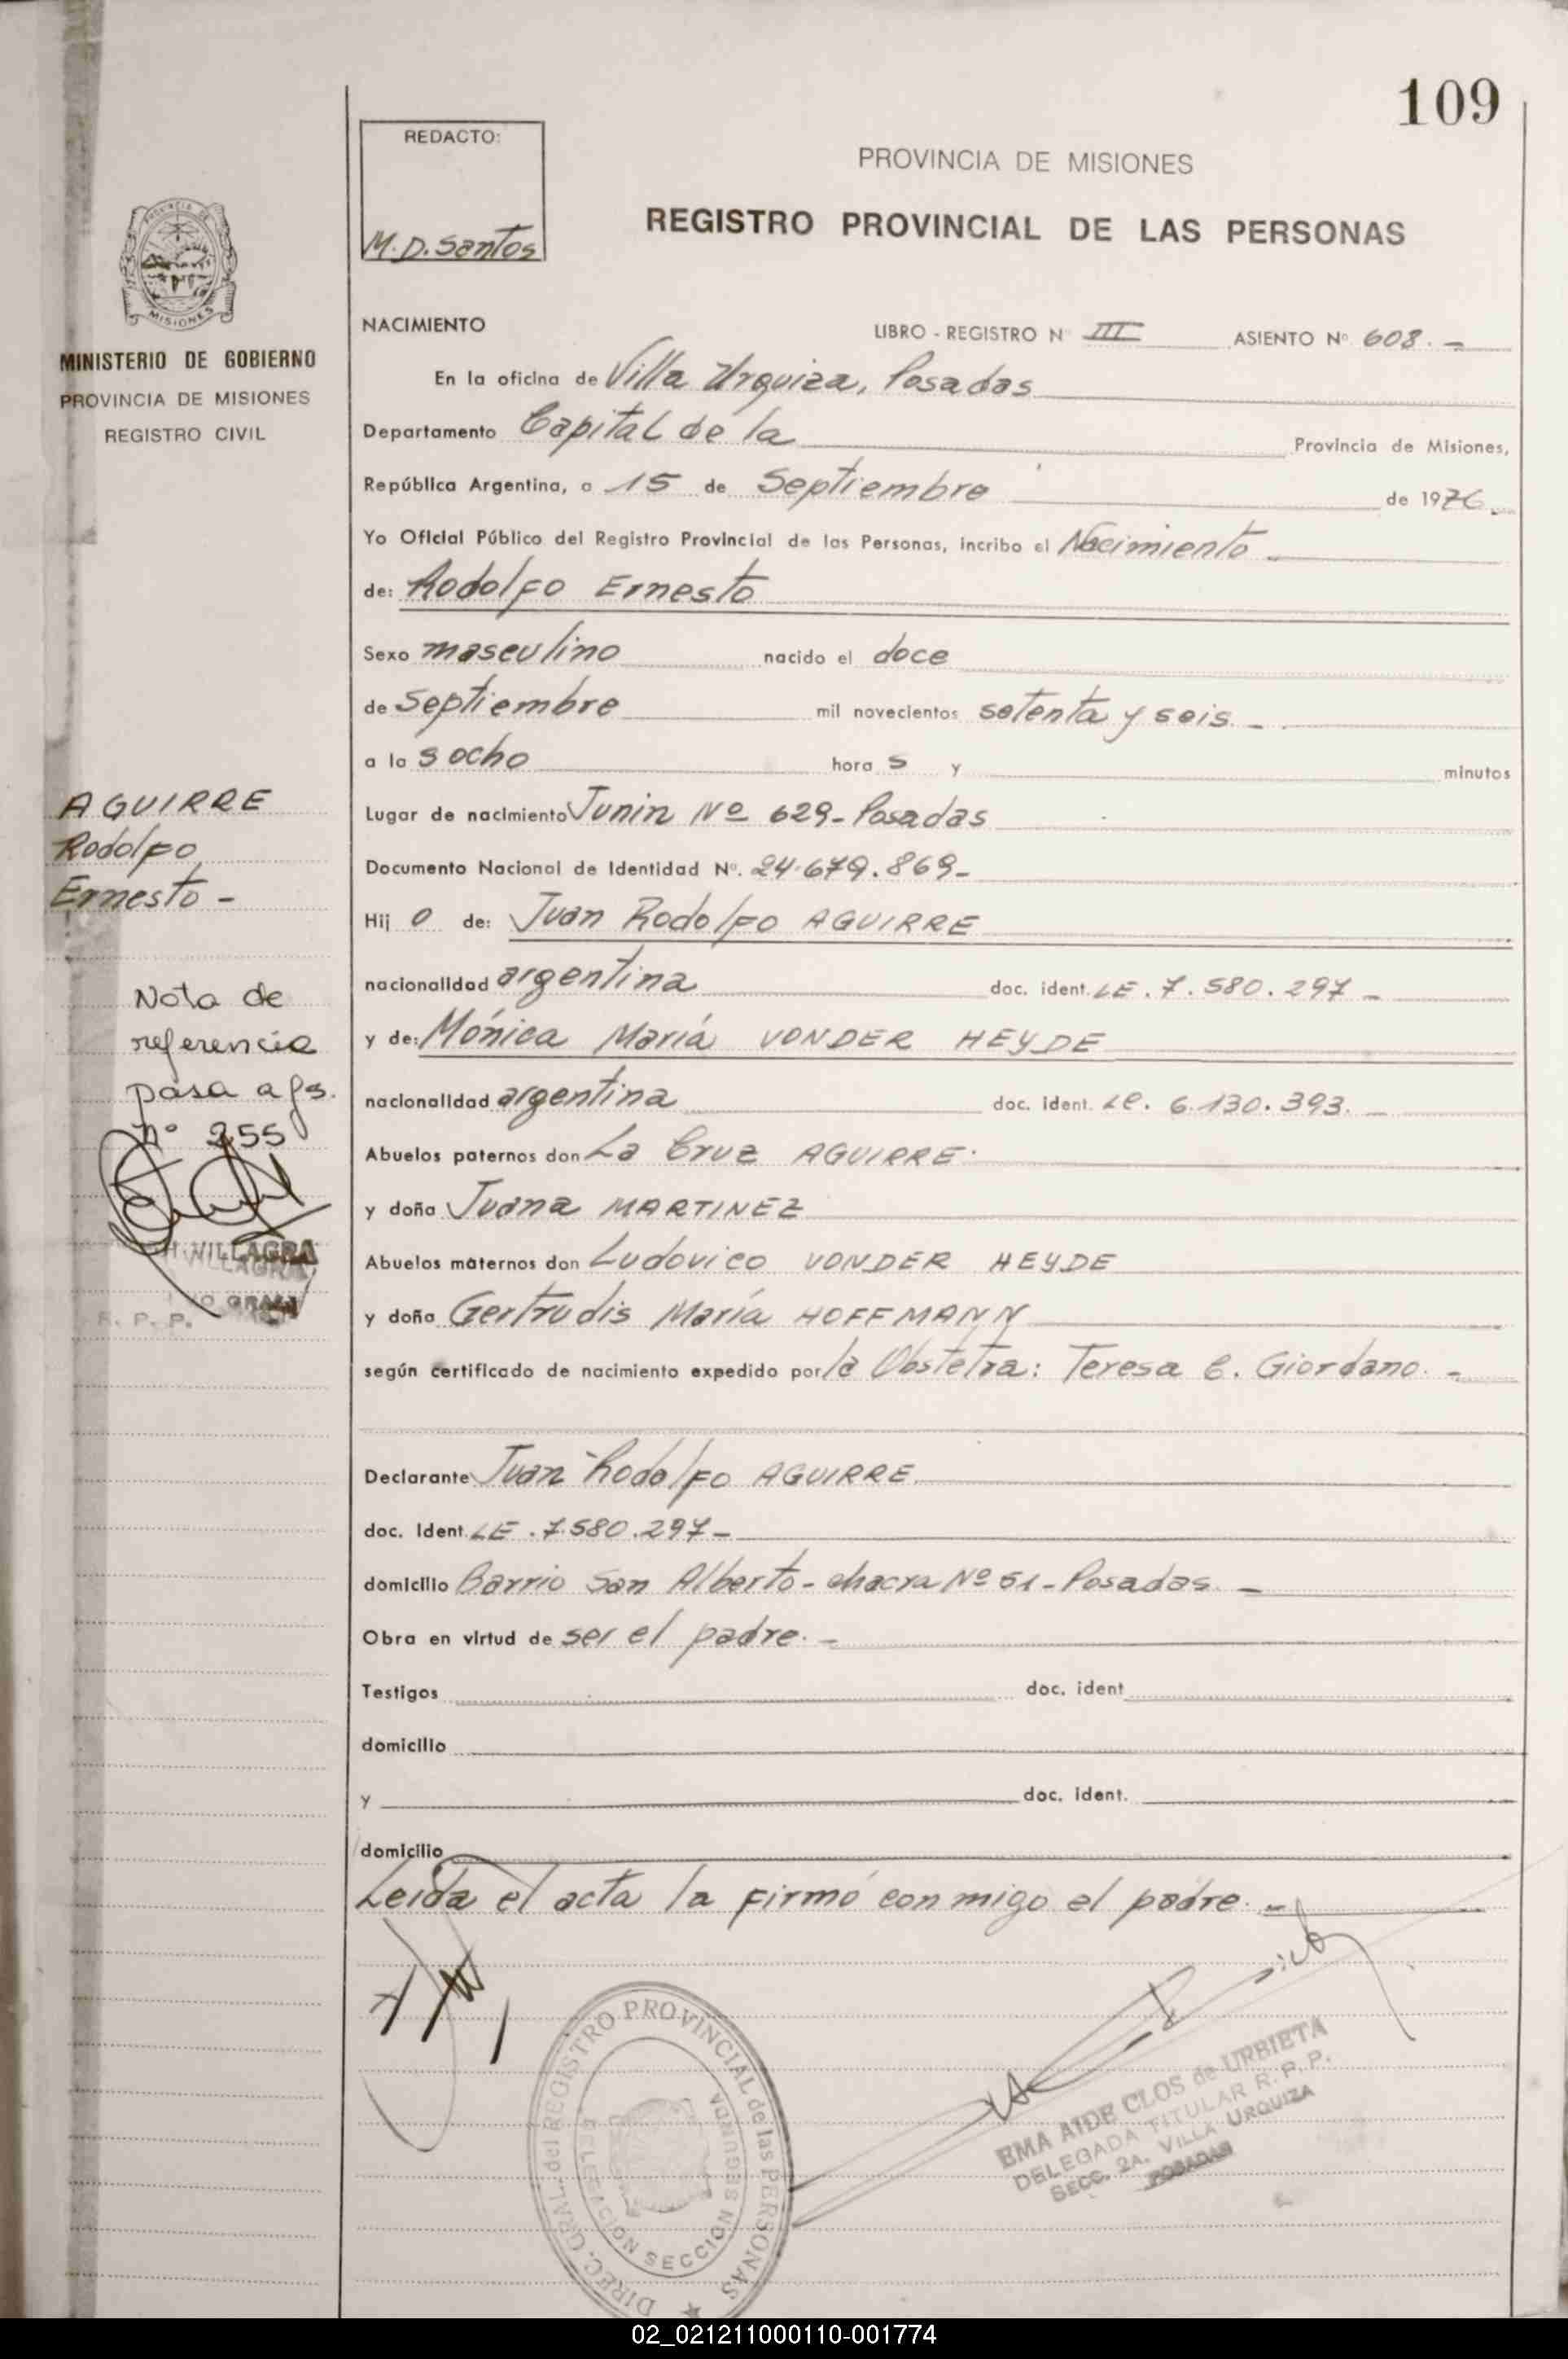 109
REDACTO:
M. D. Santos
PROVINCIA DE MISIONES
REGISTRO PROVINCIAL DE LAS PERSONAS
MISIONES
MINISTERIO DE GOBIERNO
PROVINCIA DE MISIONES
REGISTRO CIVIL
NACIMIENTO LIBRO - REGISTRO Nº III ASIENTO Nº 608. -
En la oficina de Villa Urquiza, Posadas
Departamento Capital de la Provincia de Misiones,
República Argentina, a 15 de Septiembre de 1976.
Yo Oficial Público del Registro Provincial de las Personas, incribo el Nacimiento -
de: Rodolfo Ernesto
Sexo masculino nacido el doce
de Septiembre mil novecientos setenta y seis. -
a las ocho horas y minutos
Lugar de nacimiento Junin Nº 629 - Posadas
Documento Nacional de Identidad Nº. 24.679.869 -
Hijo de: Juan Rodolfo AGUIRRE
nacionalidad argentina doc. ident. LE. 7.580.297 -
y de: Mónica María VONDER HEYDE
nacionalidad argentina doc. ident. Le. 6.130.393. -
Abuelos paternos don La Cruz AGUIRRE.
y doña Juana MARTINEZ
Abuelos maternos don Ludovico VONDER HEYDE
y doña Gertrudis María HOFFMANN
según certificado de nacimiento expedido por la Obstetra: Teresa C. Giordano. -
Declarante Juan Rodolfo AGUIRRE
doc. Ident. LE. 7.580.297 -
domicilio Barrio San Alberto - chacra Nº 51 - Posadas. -
Obra en virtud de ser el padre. -
Testigos doc. ident
domicilio
y doc. ident.
domicilio
Leída el acta la firmó conmigo el padre. -
AGUIRRE
Rodolfo
Ernesto -
Nota de
referencia
pasa a fs.
nº 255
H. VILLAGRA
R. P. P.
DIREC. GRAL. del REGISTRO PROVINCIAL de las PERSONAS
DELEGACION SECCION SEGUNDA
EMA AIDE CLOS de URBIETA
DELEGADA TITULAR R. P. P.
SECC. 2A. VILLA URQUIZA
POSADAS
02_021211000110-001774